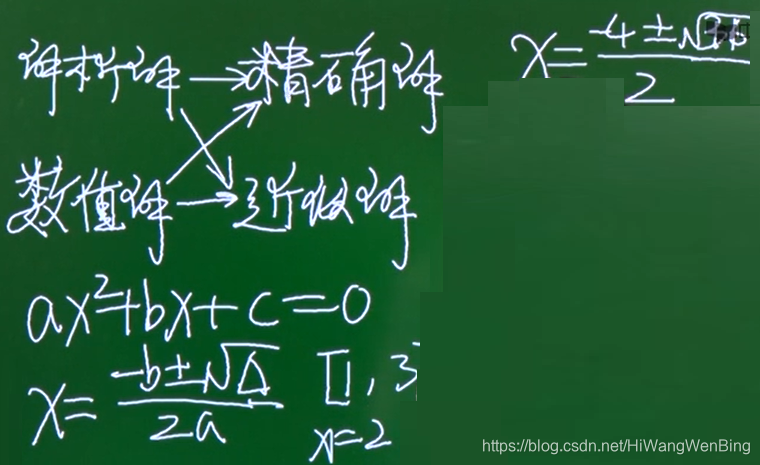 解析解 → 精确解
数值解 → 近似解
ax²+bx+c=0
x= -b±√Δ / 2a
[1,3
x=2
x= -4±√ / 2
https://blog.csdn.net/HiWangWenBing